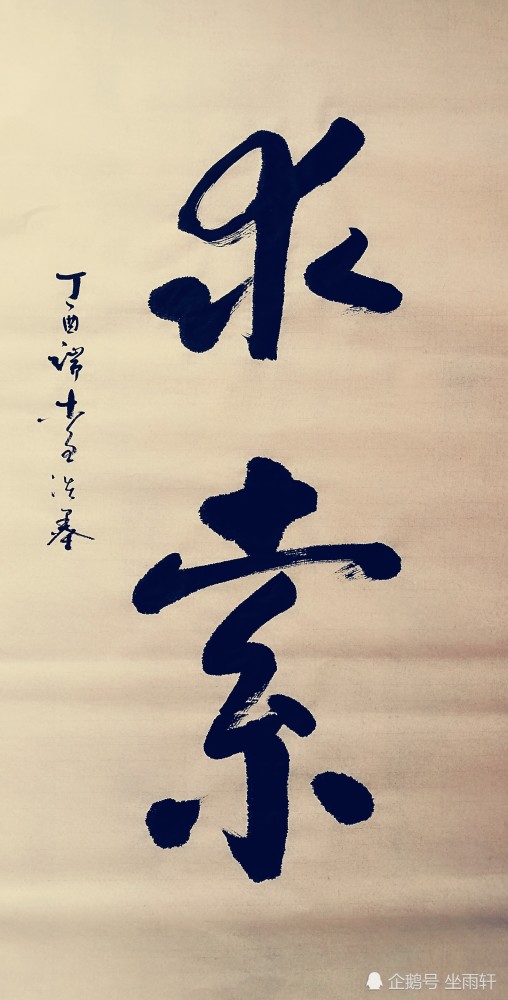 求索
丁酉端木
企鹅号 坐雨轩